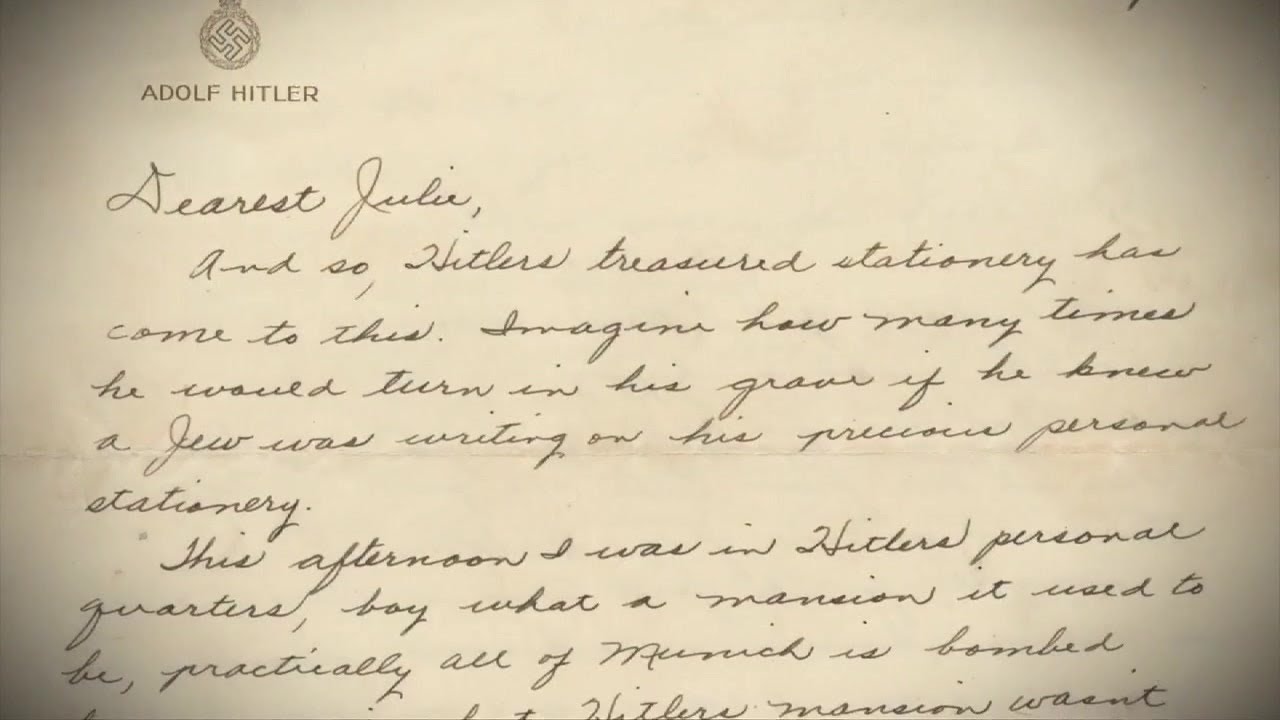 ADOLF HITLER
Dearest Julie,
And so, Hitlers treasured stationery has
come to this. Imagine how many times
he would turn in his grave if he knew
a Jew was writing on his precious personal
stationery.
This afternoon I was in Hitlers' personal
quarters, boy what a mansion it used to
be, practically all of Munich is bombed
Hitlers mansion wasn't